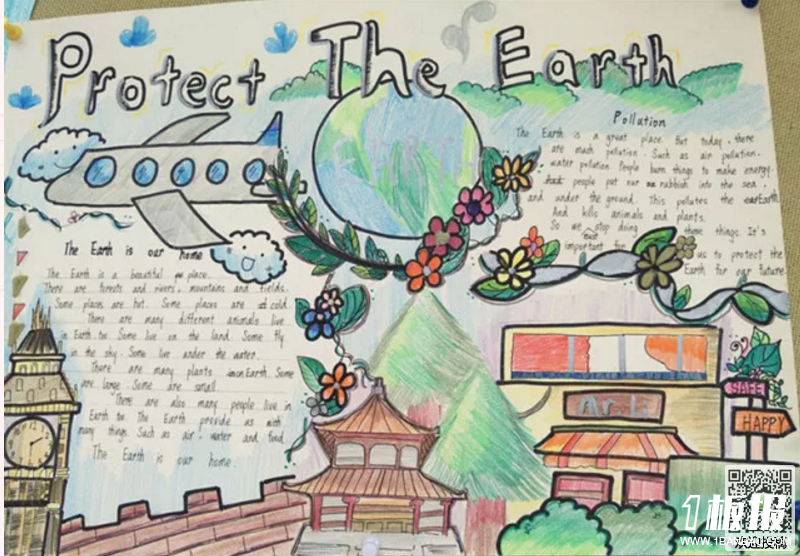 Protect The Earth
Pollution
The Earth is a great place. But today, there
are much pollution. Such as air pollution.
water pollution. People burn things to make energy.
people put our rubbish into the sea.
and under the ground. This pollutes the Earth
And kills animals and plants.
So we must stop doing these things. It's
important for us to protect the
Earth for our future
The Earth is our home
The Earth is a beautiful place.
There are forests and rivers, mountains and fields.
Some places are hot. Some places are cold.
There are many different animals live
in Earth too. Some live on the land. Some fly
in the sky. Some live under the water.
There are many plants on Earth. Some
are large. Some are small.
There are also many people live in
Earth too. The Earth provide us with
many things. Such as air, water and food
The Earth is our home.
SAFE
HAPPY
1板报
WWW.1BANBAO.COM